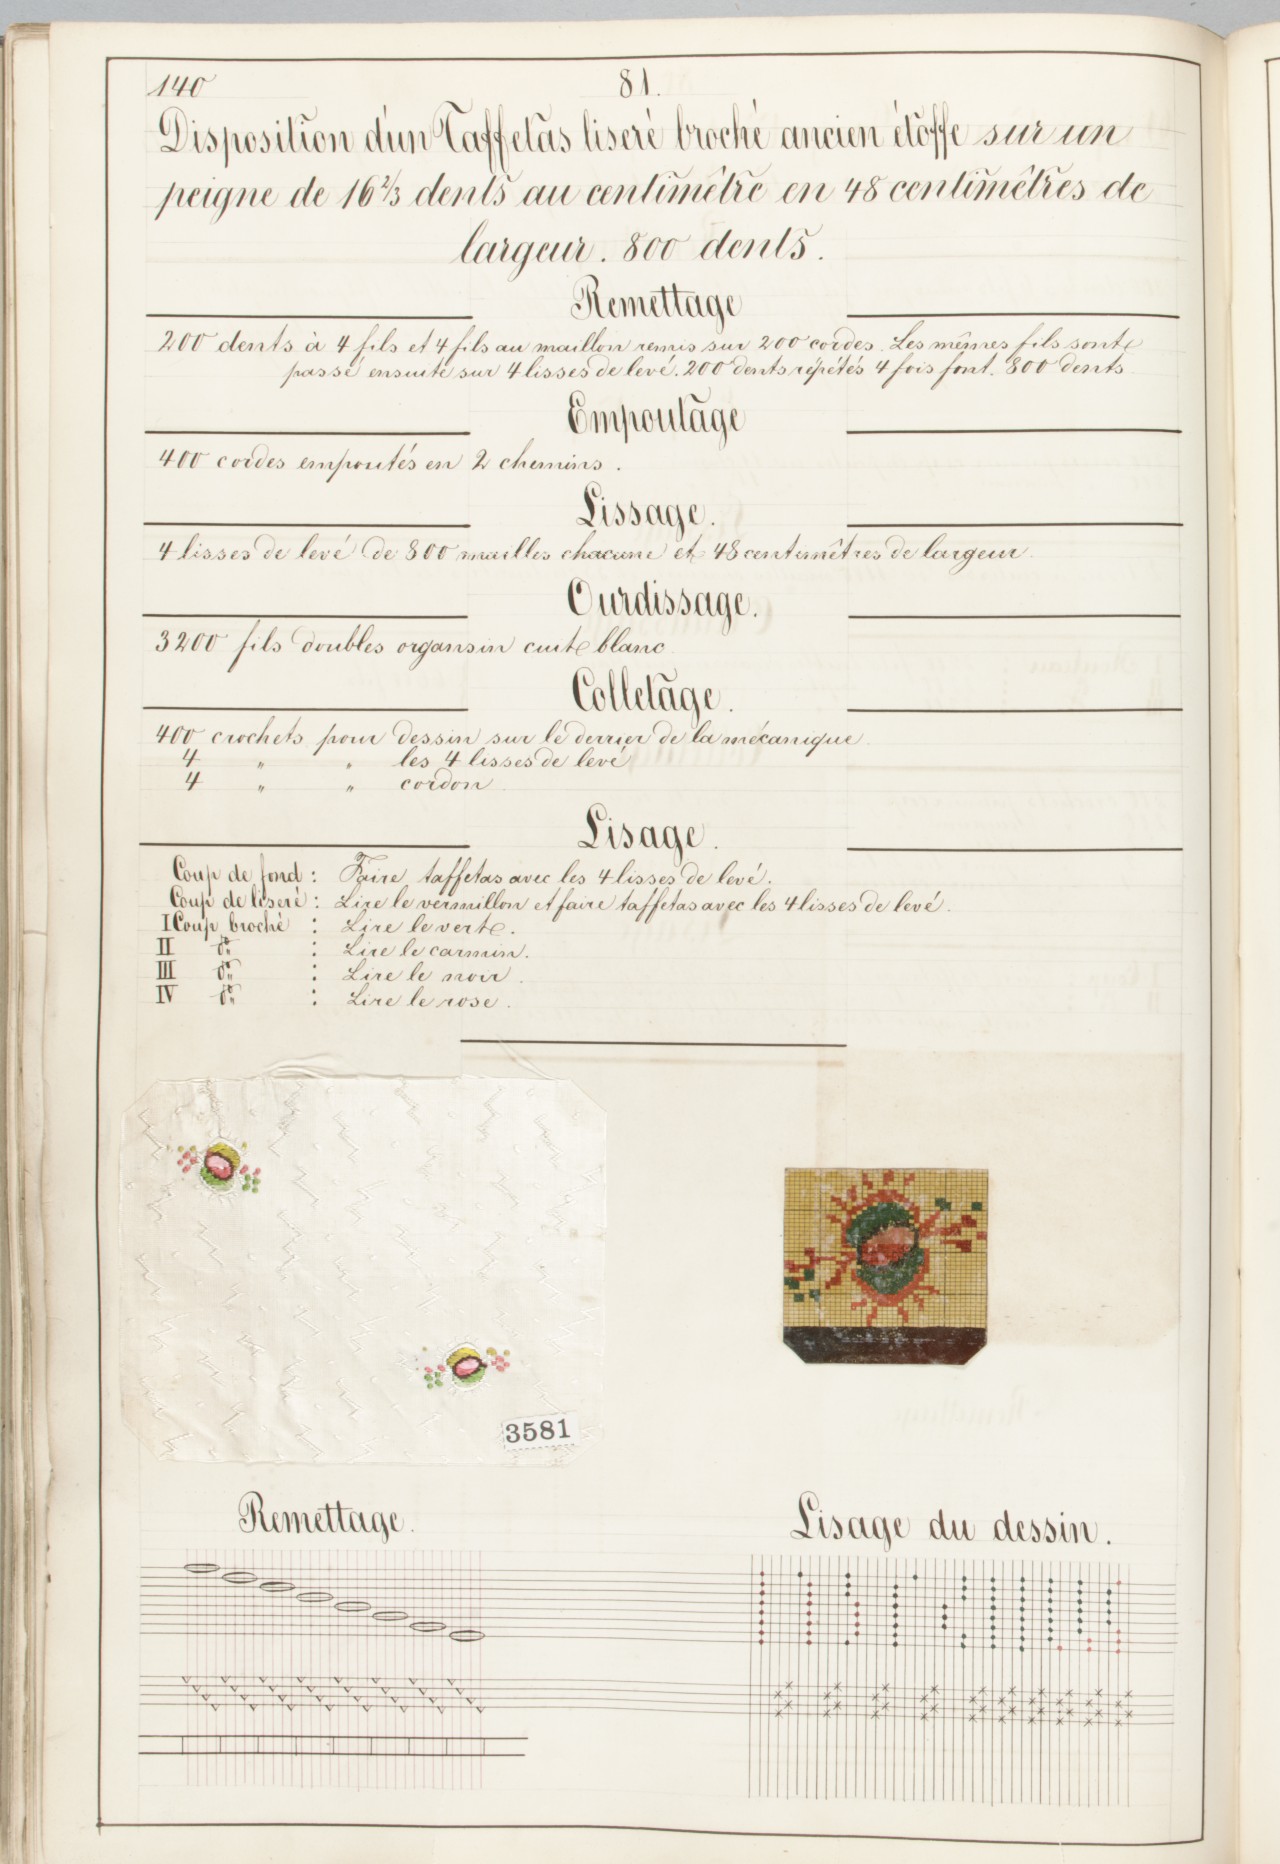 140
81.
Disposition d'un Taffetas liseré broché ancien étoffe sur un
peigne de 16 2/3 dents au centimêtre en 48 centimêtres de
largeur. 800 dents.
Remettage
200 dents à 4 fils et 4 fils au maillon remis sur 200 cordes. Les mêmes fils sont
passé ensuite sur 4 lisses de levé. 200 dents répétés 4 fois font. 800 dents
Empoutage
400 cordes empoutés en 2 chemins.
Lissage.
4 lisses de levé de 800 mailles chacune et 48 centimêtres de largeur.
Ourdissage.
3200 fils doubles organsin cuit blanc.
Colletage.
400 crochets pour dessin sur le derrier de la mécanique
4 " " les 4 lisses de levé
4 " " cordon
Lisage.
Coup de fond : Faire taffetas avec les 4 lisses de levé.
Coup de liseré : Lire le vermillon et faire taffetas avec les 4 lisses de levé.
I Coup broché : Lire le vert.
II do : Lire le carmin.
III do : Lire le noir.
IV do : Lire le rose.
3581
Remettage.
Lisage du dessin.